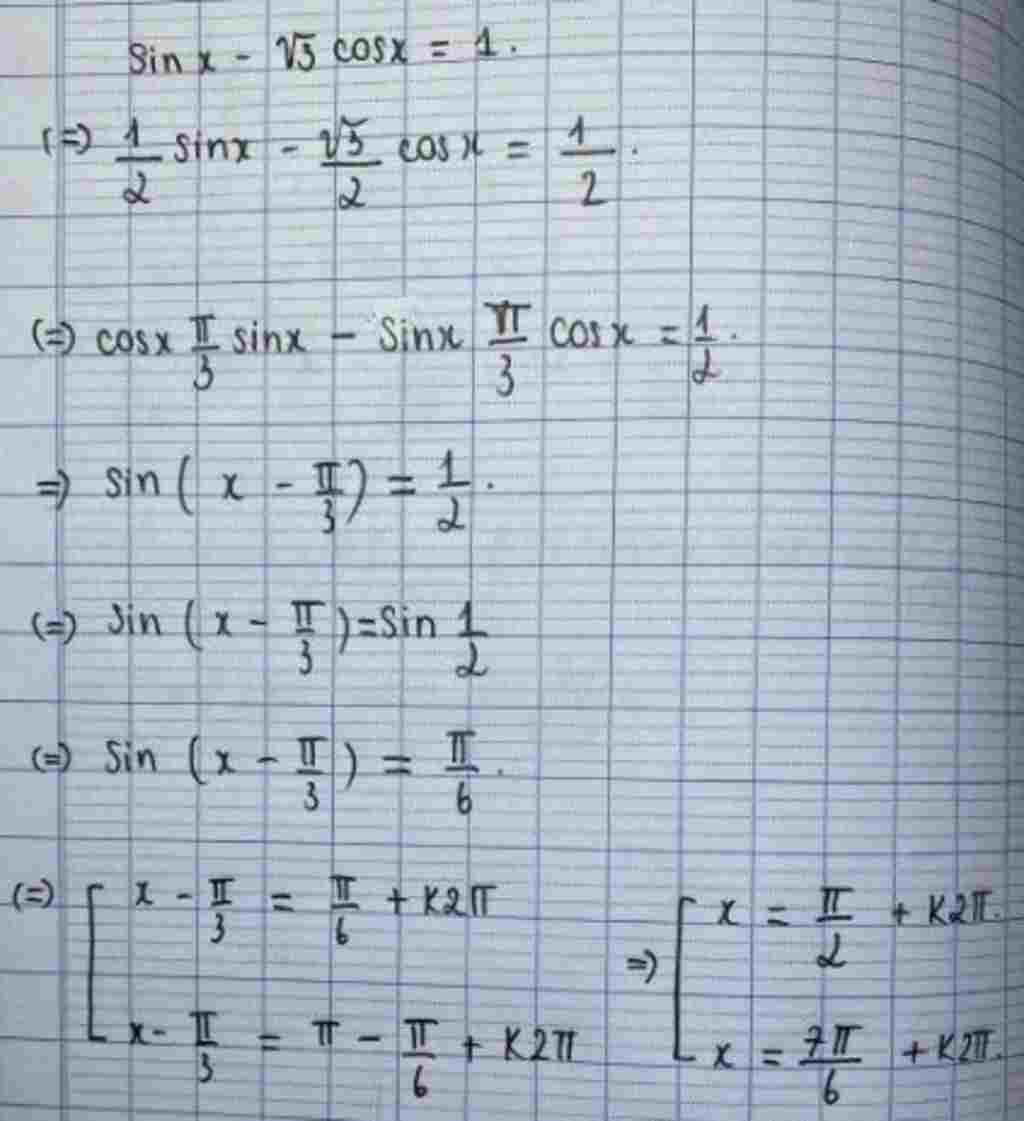 sin x - √3 cosx = 1.
(=) 1/2 sinx - √3/2 cosx = 1/2.
(=) cosx π/3 sinx - sinx π/3 cosx = 1/2.
=) sin( x - π/3) = 1/2.
(=) sin (x - π/3)=sin 1/2
(=) sin (x - π/3) = π/6.
(=) [ x - π/3 = π/6 + K2π =) [ x = π/2 + K2π.
x - π/3 = π - π/6 + K2π x = 7π/6 + K2π.